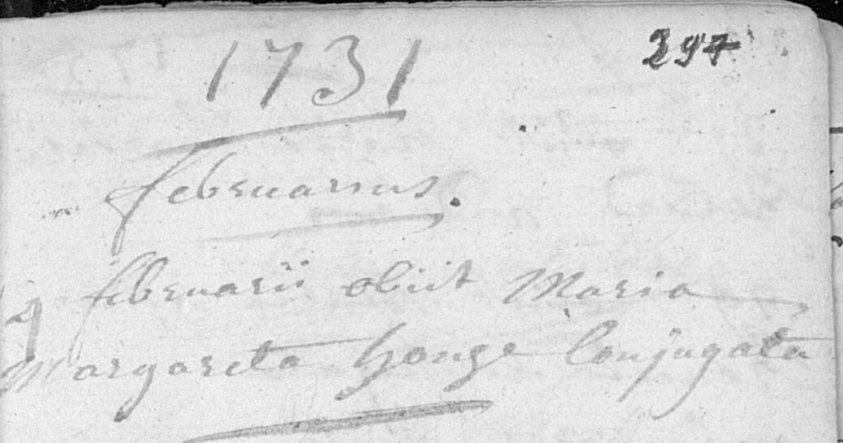 297
1731
februarius.
februarii obiit Maria
Margareta conjugata